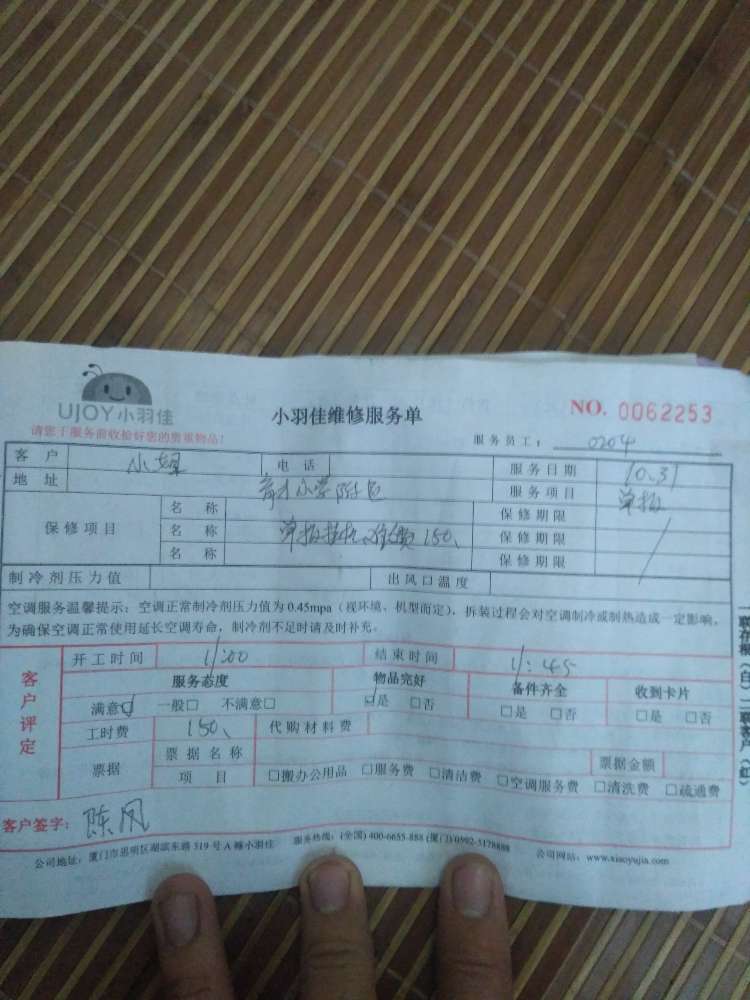 UJOY小羽佳
小羽佳维修服务单
NO. 0062253
请您于服务前收捡好您的贵重物品!
服务员工: 0204
客户 小姐 电话 服务日期 10.31
地址 育才小学附近 服务项目 单拆
保修项目 名称 保修期限
名称 150、 保修期限
名称 保修期限
制冷剂压力值 出风口温度
空调服务温馨提示:空调正常制冷剂压力值为0.45mpa(视环境、机型而定),拆装过程会对空调制冷或制热造成一定影响,
为确保空调正常使用延长空调寿命,制冷剂不足时请及时补充。
客户评定
开工时间 11:00 结束时间 11:45
服务态度 物品完好 备件齐全 收到卡片
满意☑ 一般□ 不满意□ ☑是 □否 □是 □否 □是 □否
工时费 150、 代购材料费
票据 票据名称 票据金额
项目 □搬办公用品 □服务费 □清洁费 □空调服务费 □清洗费 □疏通费
客户签字: 陈凤
公司地址:厦门市思明区湖滨东路319号A幢小羽佳 服务热线:(全国)400-6655-888(厦门)0592-5178888 公司网站:www.xiaoyujia.com
一联存根(白)二联客户(红)